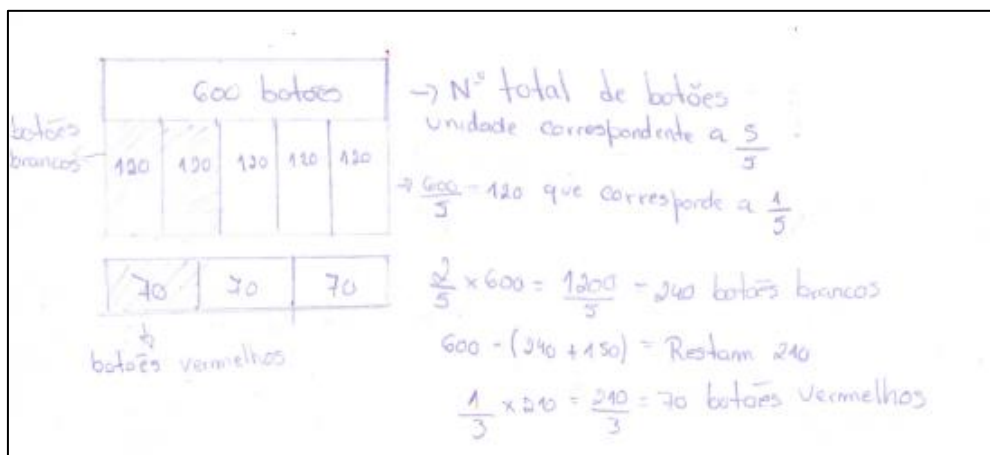 600 botões
botões
brancos
120 120 120 120 120
70 70 70
botoẽs vermelhos
→ Nº total de botões
unidade correspondente a 5/5
→ 600/5 = 120 que corresponde a 1/5
2/5 × 600 = 1200/5 = 240 botoẽs brancos
600 - (240 + 150) = Restam 210
1/3 × 210 = 210/3 = 70 botoẽs vermelhos